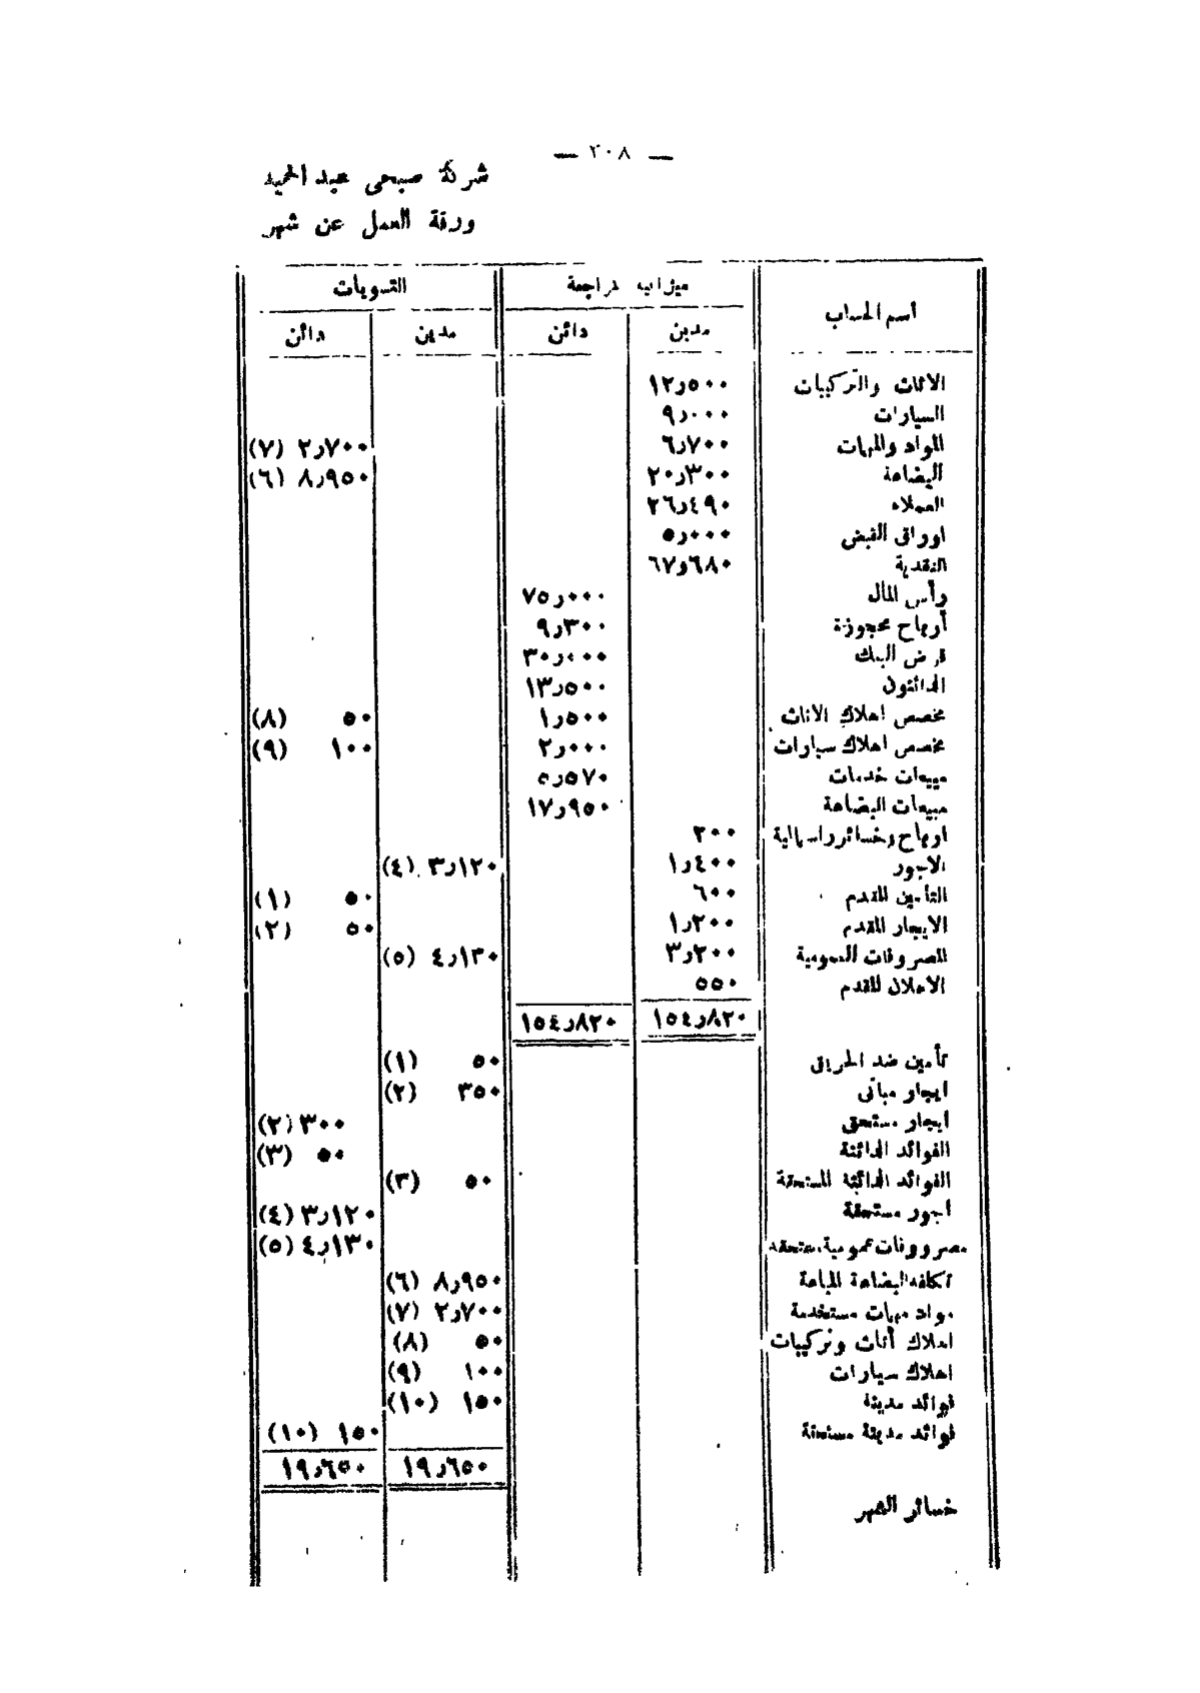 — ٢٠٨ —
شركة صبحى عبد الحميد
ورقة العمل عن شهر
اسم الحساب ميزانية مراجعة التسويات
مدين دائن مدين دائن
الاثاث والتركيبات ١٢٫٥٠٠
السيارات ٩٫٠٠٠
المواد والمهات ٦٫٧٠٠ ٢٫٧٠٠ (٧)
البضاعة ٢٠٫٣٠٠ ٨٫٩٥٠ (٦)
العملاء ٢٦٫٤٩٠
اوراق القبض ٥٫٠٠٠
النقدية ٦٧٫٦٨٠
رأس المال ٧٥٫٠٠٠
أرباح محجوزة ٩٫٣٠٠
قرض البنك ٣٠٫٠٠٠
الدائنون ١٣٫٥٠٠
مخصص اهلاك الاثاث ١٫٥٠٠ ٥٠ (٨)
مخصص اهلاك سيارات ٢٫٠٠٠ ١٠٠ (٩)
مبيعات خدمات ٥٫٥٧٠
مبيعات البضاعة ١٧٫٩٥٠
ارباح وخسائر راسمالية ٢٠٠
الاجور ١٫٤٠٠ ٣٫١٢٠ (٤)
التأمين المقدم ٦٠٠ ٥٠ (١)
الايجار المقدم ١٫٢٠٠ ٥٠ (٢)
المصروفات العمومية ٣٫٢٠٠ ٤٫١٣٠ (٥)
الاعلان المقدم ٥٥٠
١٥٤٫٨٢٠ ١٥٤٫٨٢٠
تأمين ضد الحريق ٥٠ (١)
ايجار مبانى ٣٥٠ (٢)
ايجار مستحق ٣٠٠ (٢)
الفوائد الدائنة ٥٠ (٣)
الفوائد الدائنة المستحقة ٥٠ (٣)
اجور مستحقة ٣٫١٢٠ (٤)
مصروفات عمومية مستحقة ٤٫١٣٠ (٥)
تكلفة البضاعة المباعة ٨٫٩٥٠ (٦)
مواد مهات مستخدمة ٢٫٧٠٠ (٧)
اهلاك أثاث وتركيبات ٥٠ (٨)
اهلاك سيارات ١٠٠ (٩)
فوائد مدينة ١٥٠ (١٠)
فوائد مدينة مستحقة ١٥٠ (١٠)
١٩٫٦٥٠ ١٩٫٦٥٠
خسائر الشهر